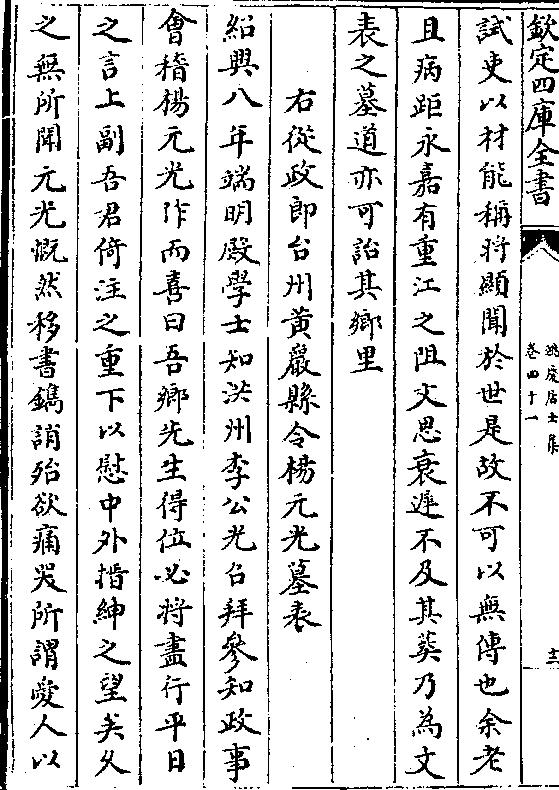 欽定四庫全書
鴻慶居士集
卷四十一
十二
試吏以材能稱將顯聞於世是故不可以無傳也余老
且病距永嘉有重江之阻文思衰遲不及其葬乃為文
表之墓道亦可詒其鄉里
右從政郎台州黃巖縣令楊元光墓表
紹興八年端明殿學士知洪州李公光召拜參知政事
會稽楊元光作而喜曰吾鄉先生得位必將盡行平日
之言上副吾君倚注之重下以慰中外搢紳之望矣久
之無所聞元光慨然移書鐫誚殆欲痛哭所謂愛人以